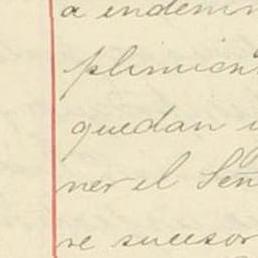 a indemn
plimien
quedan
ner el Señ
se sucesor